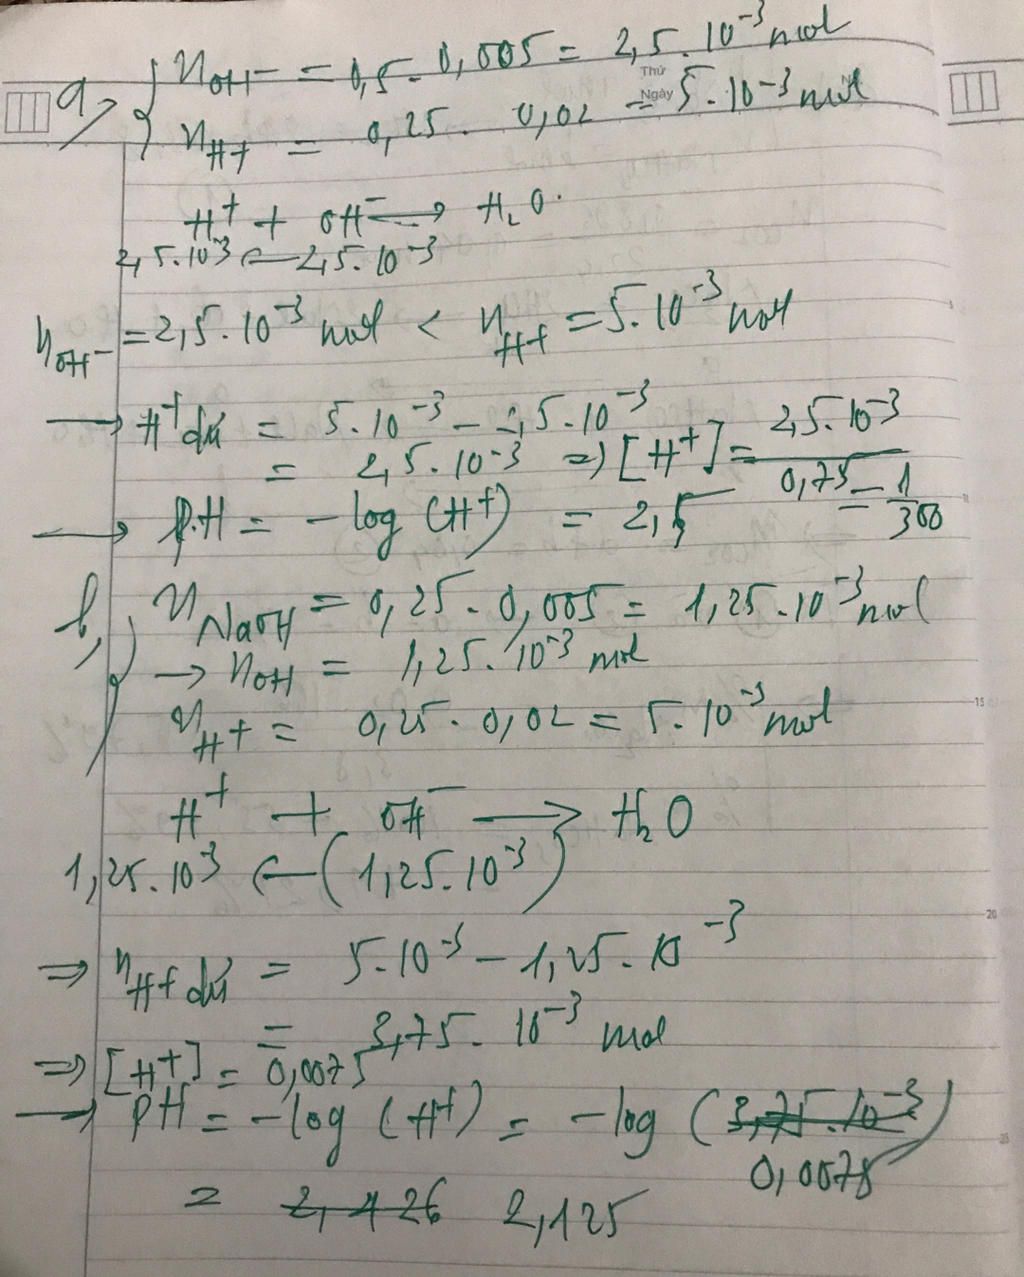 a, { nOH- = 0,5 . 0,005 = 2,5.10^-3 mol
Thứ
Ngày
nH+ = 0,25 . 0,02 = 5.10^-3 mol
H+ + OH- → H2O.
2,5.10^-3 ← 2,5.10^-3
nOH- = 2,5.10^-3 mol < nH+ = 5.10^-3 mol
→ H+ dư = 5.10^-3 - 2,5.10^-3
= 2,5.10^-3 => [H+] = 2,5.10^-3 / 0,75 = 1/300
→ pH = -log (H+) = 2,5
b, { nNaOH = 0,25 . 0,005 = 1,25.10^-3 mol
→ nOH = 1,25.10^-3 mol
nH+ = 0,25 . 0,02 = 5.10^-3 mol
15
H+ + OH- → H2O
1,25.10^-3 ← (1,25.10^-3)
20
=> nH+ dư = 5.10^-3 - 1,25.10^-3
= 3,75.10^-3 mol
=> [H+] = 0,0075
→ pH = -log (H+) = -log (3,75.10^-3)
0,0075
= 2,426 2,125